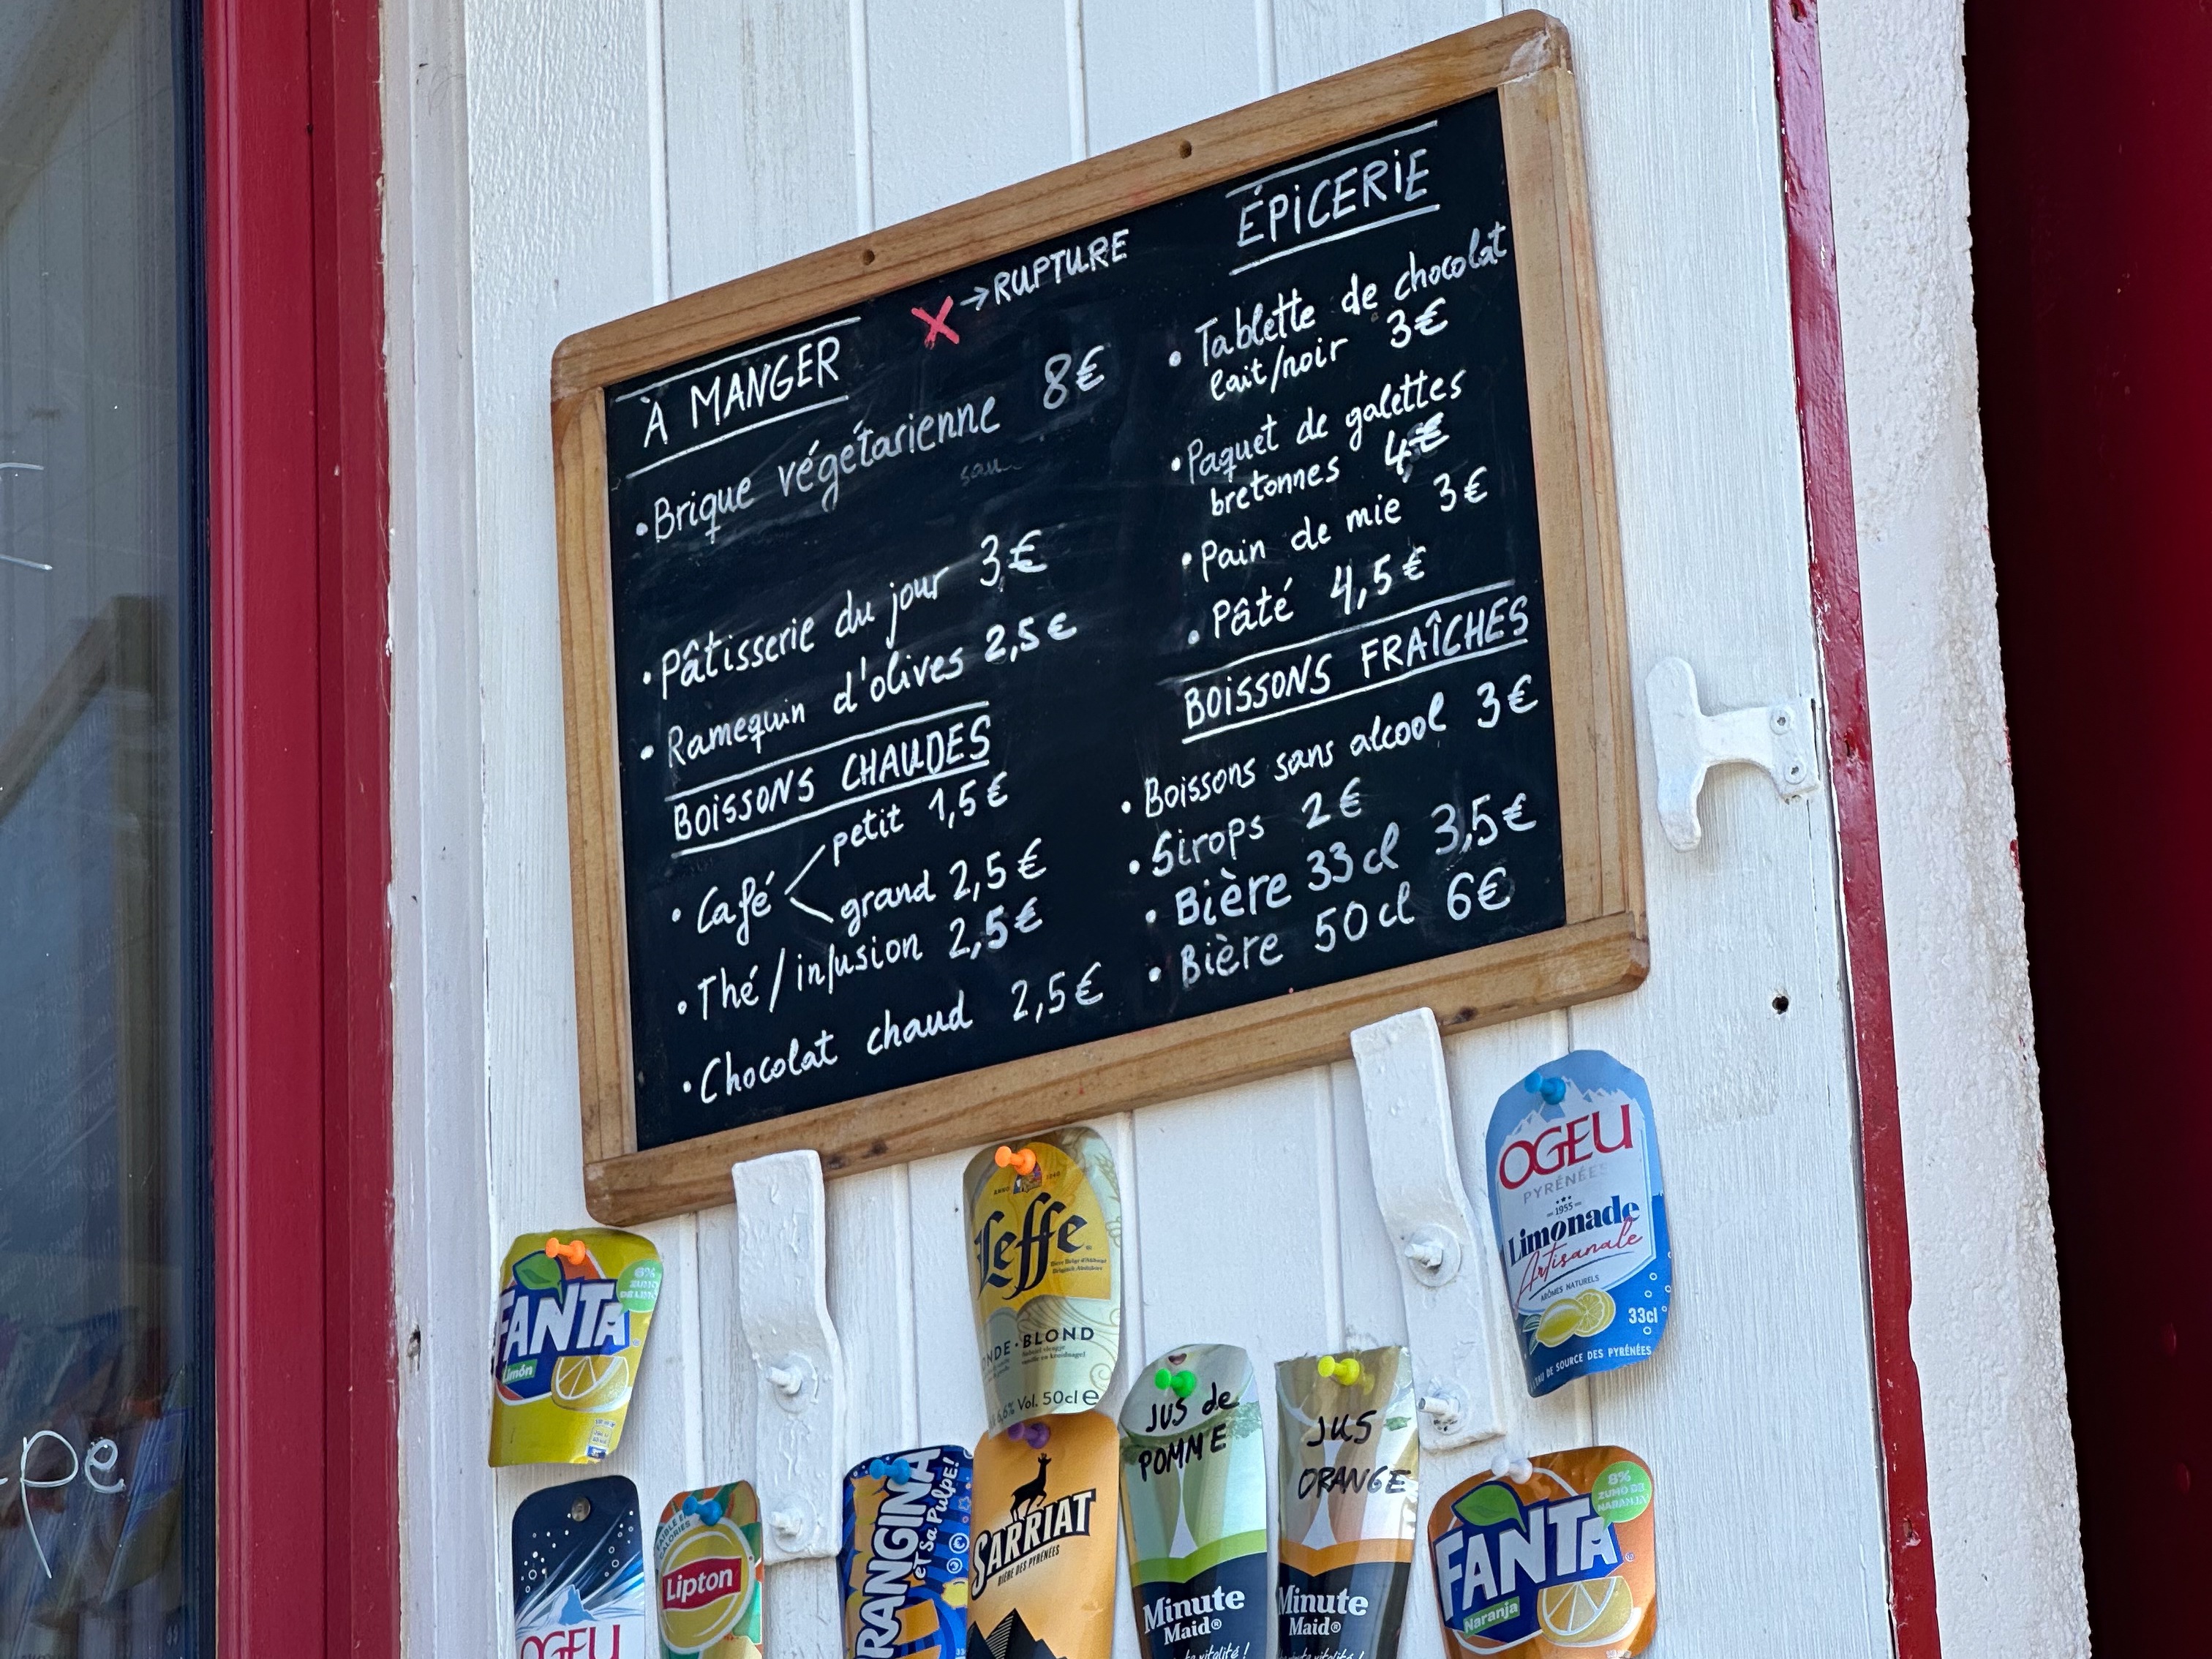 X → RUPTURE
À MANGER
• Brique végétarienne 8€
• Pâtisserie du jour 3€
• Ramequin d'olives 2,5€
BOISSONS CHAUDES
• Café petit 1,5€
grand 2,5€
• Thé/infusion 2,5€
• Chocolat chaud 2,5€
ÉPICERIE
• Tablette de chocolat
lait/noir 3€
• Paquet de galettes
bretonnes 4€
• Pain de mie 3€
• Pâté 4,5€
BOISSONS FRAÎCHES
• Boissons sans alcool 3€
• Sirops 2€
• Bière 33cl 3,5€
• Bière 50cl 6€
FANTA
Limón
Leffe
BLOND
Vol. 50cl e
OGEU
PYRÉNÉES
1955
Limonade
Artisanale
ARÔMES NATURELS
33cl
DE SOURCE DES PYRÉNÉES
OGEU
Lipton
et Sa Pulpe!
SARRIAT
BIÈRE DES PYRÉNÉES
JUS de
POMME
Minute
Maid®
JUS
ORANGE
Minute
Maid®
8%
ZUMO DE
NARANJA
FANTA
Naranja
pe